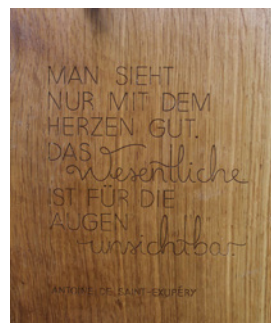 MAN SIEHT
NUR MIT DEM
HERZEN GUT.
DAS
Wesentliche
IST FÜR DIE
AUGEN
unsichtbar
ANTOINE DE SAINT-EXUPÉRY